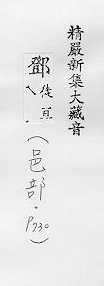 精嚴新集大藏音
鄧 徒亘
(邑部·P730)